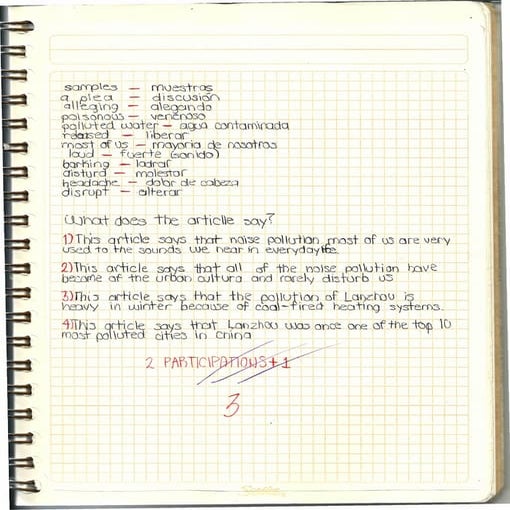 samples — muestras
a plea — discusión
alleging — alegando
poisonous — venenoso
polluted water — agua contaminada
released — liberar
most of us — mayoria de nosotros
loud — fuerte (sonido)
barking — ladrar
disturd — molestar
headache — dolor de cabeza
disrupt — alterar
What does the articlle say?
1) This article says that noise pollution most of us are very
used to the sounds we hear in everyday life.
2) This article says that all of the noise pollution have
become of the urban cultura and rarely disturb us
3) This article says that the pollution of Lanzhou is
heavy in winter because of coal-fired heating systems.
4) This article says that Lanzhou was once one of the top 10
most polluted cities in China
2 PARTICIPATIONS + 1
3